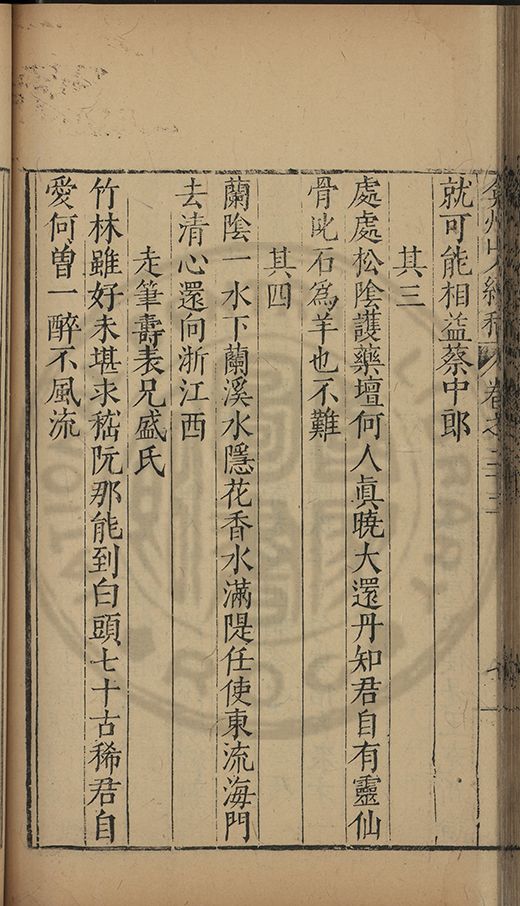 就可能相益蔡中郎
其三
處處松陰護藥壇何人眞曉大還丹知君自有靈仙
骨叱石爲羊也不難
其四
蘭陰一水下蘭溪水隱花香水滿隄任使東流海門
去清心還向浙江西
走筆壽表兄盛氏
竹林雖好未堪求嵇阮那能到白頭七十古稀君自
愛何曽一醉不風流